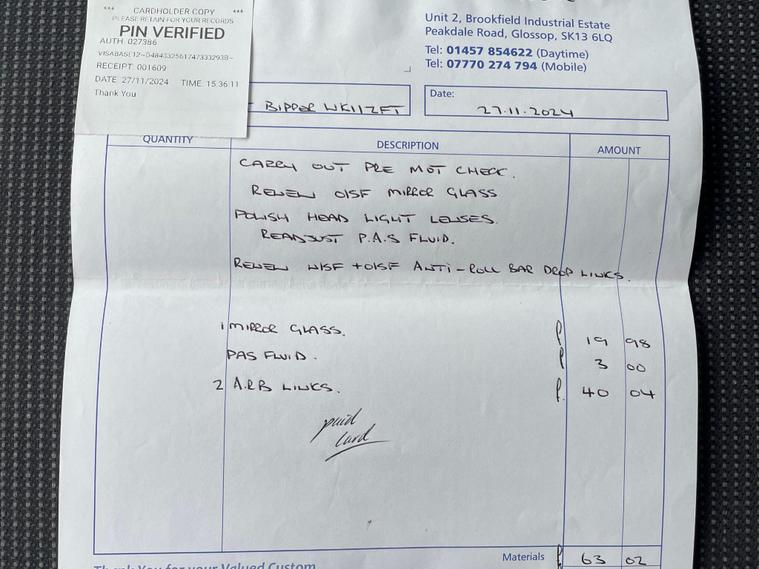 *** CARDHOLDER COPY ***
PLEASE RETAIN FOR YOUR RECORDS
PIN VERIFIED
AUTH 027386
RECEIPT 001609
DATE 27/11/2024 TIME 15:36:11
Thank You
Unit 2, Brookfield Industrial Estate
Peakdale Road, Glossop, SK13 6LQ
Tel: 01457 854622 (Daytime)
Tel: 07770 274 794 (Mobile)
BIPPER WK11ZFT
Date:
27.11.2024
QUANTITY DESCRIPTION AMOUNT
CARRY OUT PRE MOT CHECK.
RENEW O/SF MIRROR GLASS
POLISH HEAD LIGHT LENSES.
READJUST P.A.S FLUID.
RENEW N/SF + O/SF ANTI-ROLL BAR DROP LINKS.
1 MIRROR GLASS. P 19 98
PAS FLUID. P 3 00
2 A.R.B LINKS. P. 40 04
paid
card
Materials P 63 02
Thank You for your Valued Custom